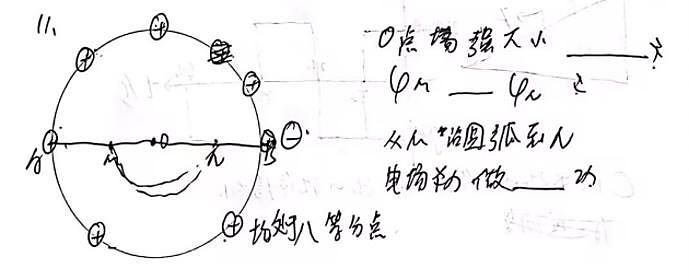 11.
O点场强大小
φM ___ φN
从M沿圆弧至N
电场力做 ___ 功
A M O N B
均处八等分点